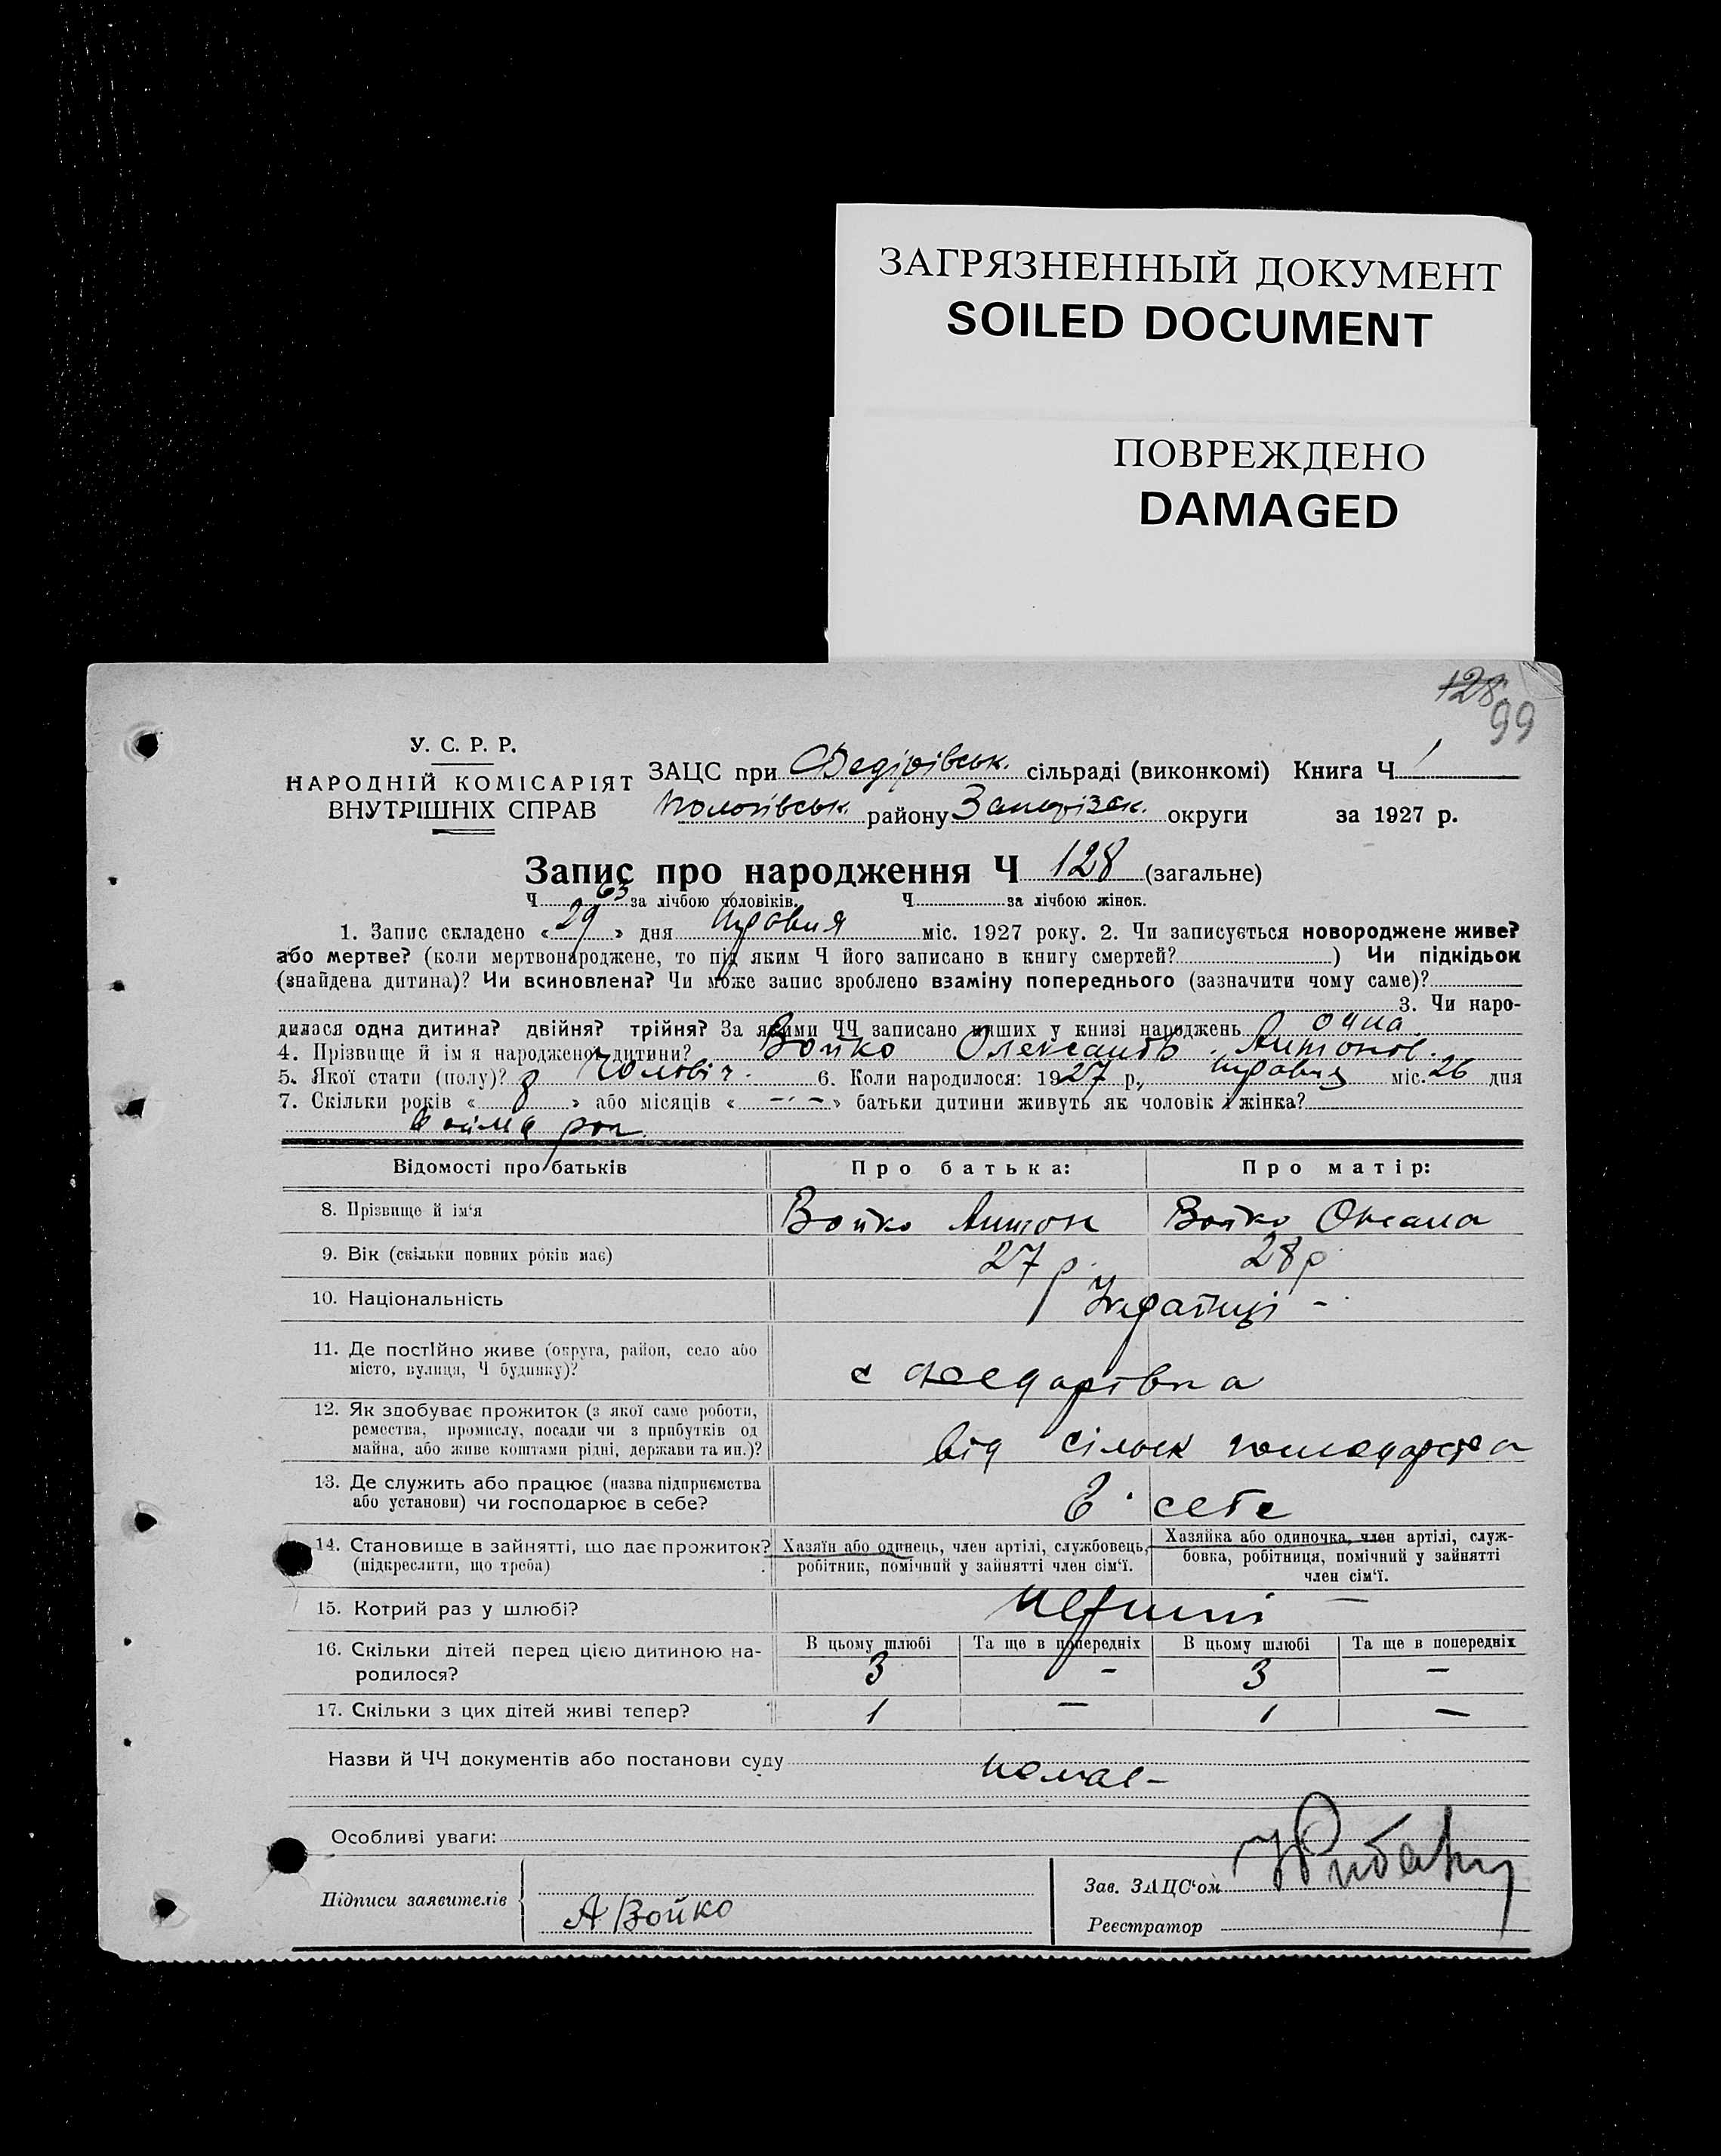 ЗАГРЯЗНЕННЫЙ ДОКУМЕНТ
SOILED DOCUMENT
ПОВРЕЖДЕНО
DAMAGED
128
99
У. С. Р. Р.
НАРОДНІЙ КОМІСАРІЯТ
ВНУТРІШНІХ СПРАВ
ЗАЦС при Федірівськ. сільраді (виконкомі) Книга Ч 1
Пологівськ. району Запорізк. округи за 1927 р.
Запис про народження Ч 128 (загальне)
Ч 63 за лічбою чоловіків. Ч за лічбою жінок.
1. Запис складено « 29 » дня травня міс. 1927 року. 2. Чи записується новороджене живе?
або мертве? (коли мертвонароджене, то під яким Ч його записано в книгу смертей? ) Чи підкідьок
(знайдена дитина)? Чи всиновлена? Чи може запис зроблено взаміну попереднього (зазначити чому саме)?
3. Чи наро-
дилася одна дитина? двійня? трійня? За якими ЧЧ записано инших у книзі народжень одна
4. Прізвище й ім'я народженої дитини? Бойко Олександ. Антонов.
5. Якої стати (полу)? чоловіч. 6. Коли народилося: 1927 р., травня міс. 26 дня
7. Скільки років « 8 » або місяців « - - » батьки дитини живуть як чоловік і жінка?
рок.
Відомості про батьків Про батька: Про матір:
8. Прізвище й ім'я Бойко Антон Бойко Оксана
9. Вік (скільки повних років має) 27 р. 28 р
10. Національність Українці -
11. Де постійно живе (округа, район, село або
місто, вулиця, Ч будинку)? с Федорівка
12. Як здобуває прожиток (з якої саме роботи,
ремества, промислу, посади чи з прибутків од
майна, або живе коштами рідні, держави та ин.)? від сільск
13. Де служить або працює (назва підприємства
або установи) чи господарює в себе? В себе
14. Становище в зайнятті, що дає прожиток? Хазяїн або одинець, член артілі, службовець, Хазяйка або одиночка, член артілі, служ-
(підкреслити, що треба) робітник, помічний у зайнятті член сім'ї. бовка, робітниця, помічний у зайнятті
член сім'ї.
15. Котрий раз у шлюбі? перший —
16. Скільки дітей перед цією дитиною на- В цьому шлюбі Та ще в попередніх В цьому шлюбі Та ще в попередніх
родилося? 3 - 3 —
17. Скільки з цих дітей живі тепер? 1 — 1 —
Назви й ЧЧ документів або постанови суду немає -
Особливі уваги:
Підписи заявителів А Бойко
Зав. ЗАЦС'ом
Реєстратор